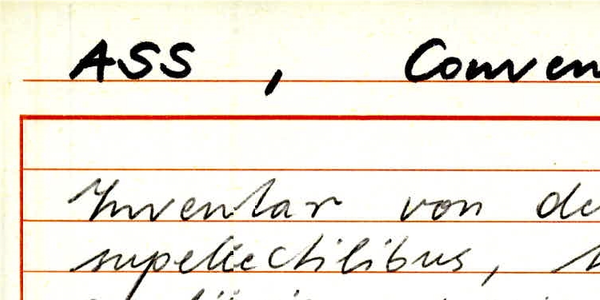 ASS, Conven
Inventar von de
supellectilibus,